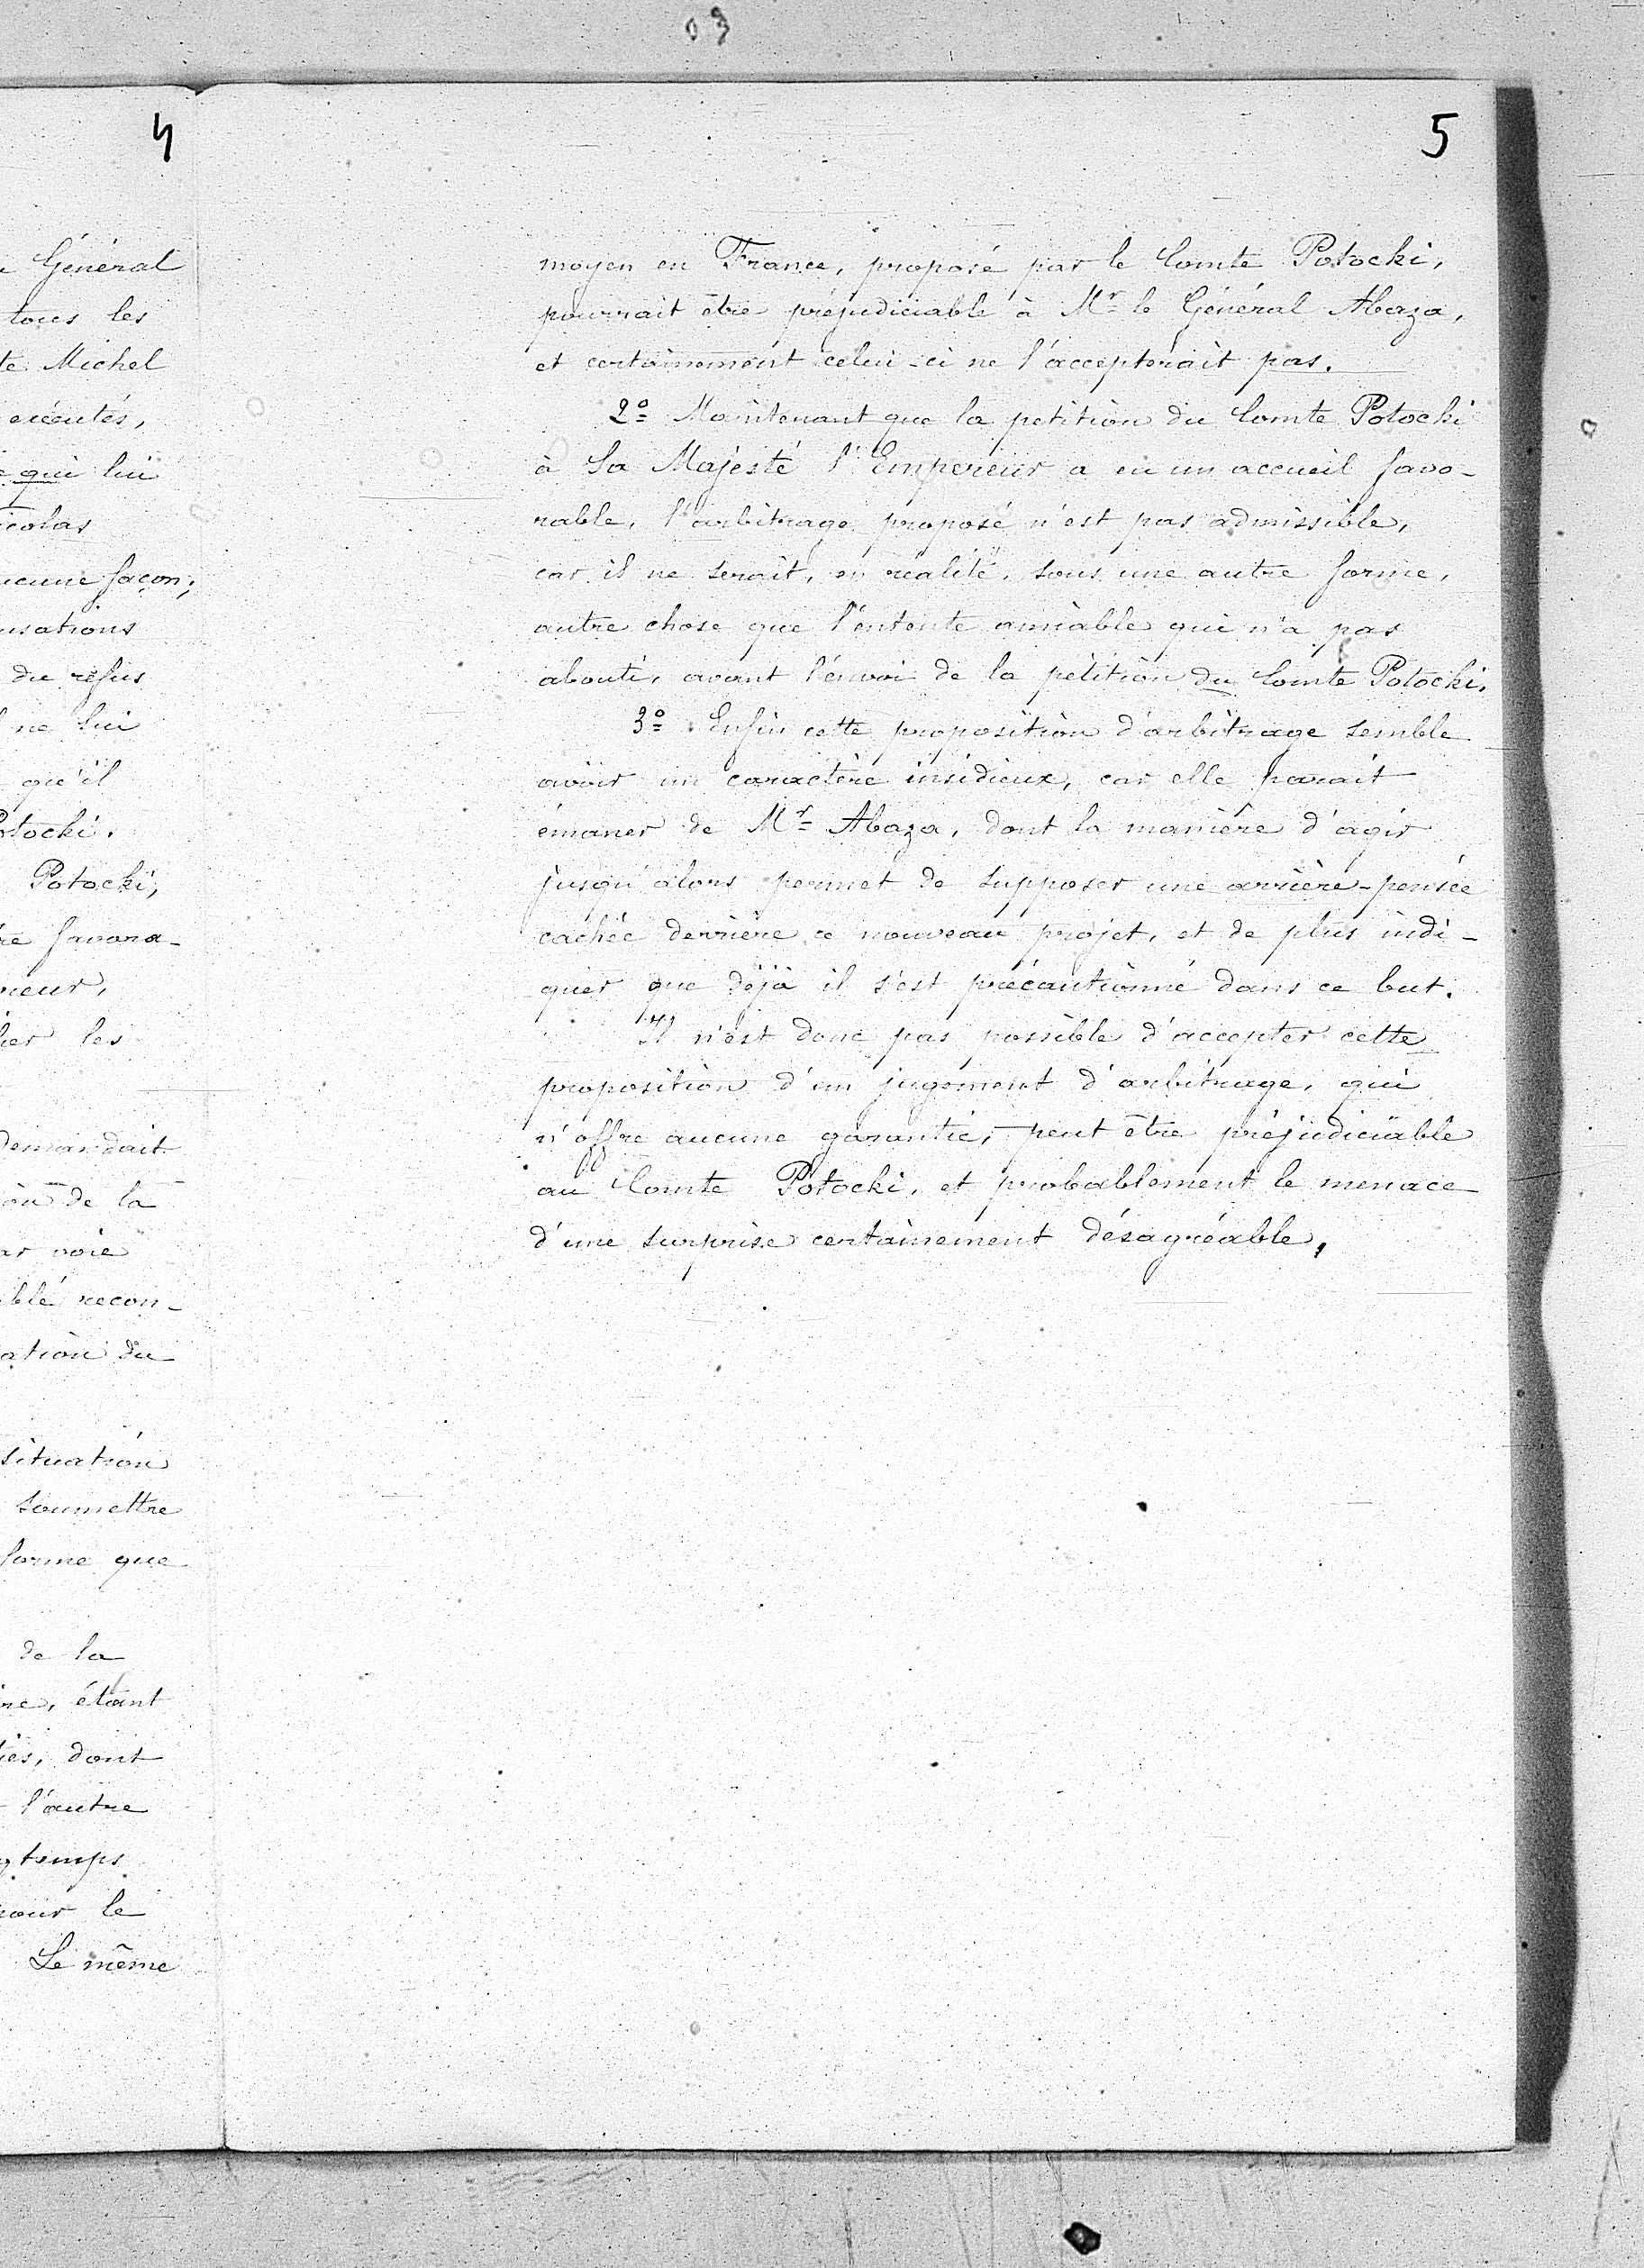 4
Général
tous les
te Michel
exécutés,
qui lui
icolas
ucune façon;
usations
du refus
ne lui
qu'il
Potocki.
Potocki,
re favora-
rieur,
lier les
demandait
on de la
ar voie
blé recon-
ation du
situation
soumettre
forme que
de la
ire, étant
ties, dont
l'autre
temps
pour le
Le même
5
moyen en France, proposé par le Comte Potocki,
pourrait être préjudiciable à Mr le Général Abaza,
et certainement celui-ci ne l'accepterait pas.
2º Maintenant que la petition du Comte Potocki
à Sa Majesté l'Empereur a eu un accueil favo-
rable, l'arbitrage proposé n'est pas admissible,
car il ne serait, en réalité, sous une autre forme,
autre chose que l'entente amiable qui n'a pas
abouti, avant l'envoi de la pétition du Comte Potocki.
3º Enfin cette proposition d'arbitrage semble
avoir un caractère insidieux, car elle parait
émaner de Mr Abaza, dont la manière d'agir
jusqu'alors permet de supposer une arrière-pensée
cachée derrière ce nouveau projet, et de plus indi-
quer que déjà il s'est précautionné dans ce but.
Il n'est donc pas possible d'accepter cette
proposition d'un jugement d'arbitrage, qui
n'offre aucune garantie, peut être préjudiciable
au Comte Potocki, et probablement le menace
d'une surprise certainement désagréable.